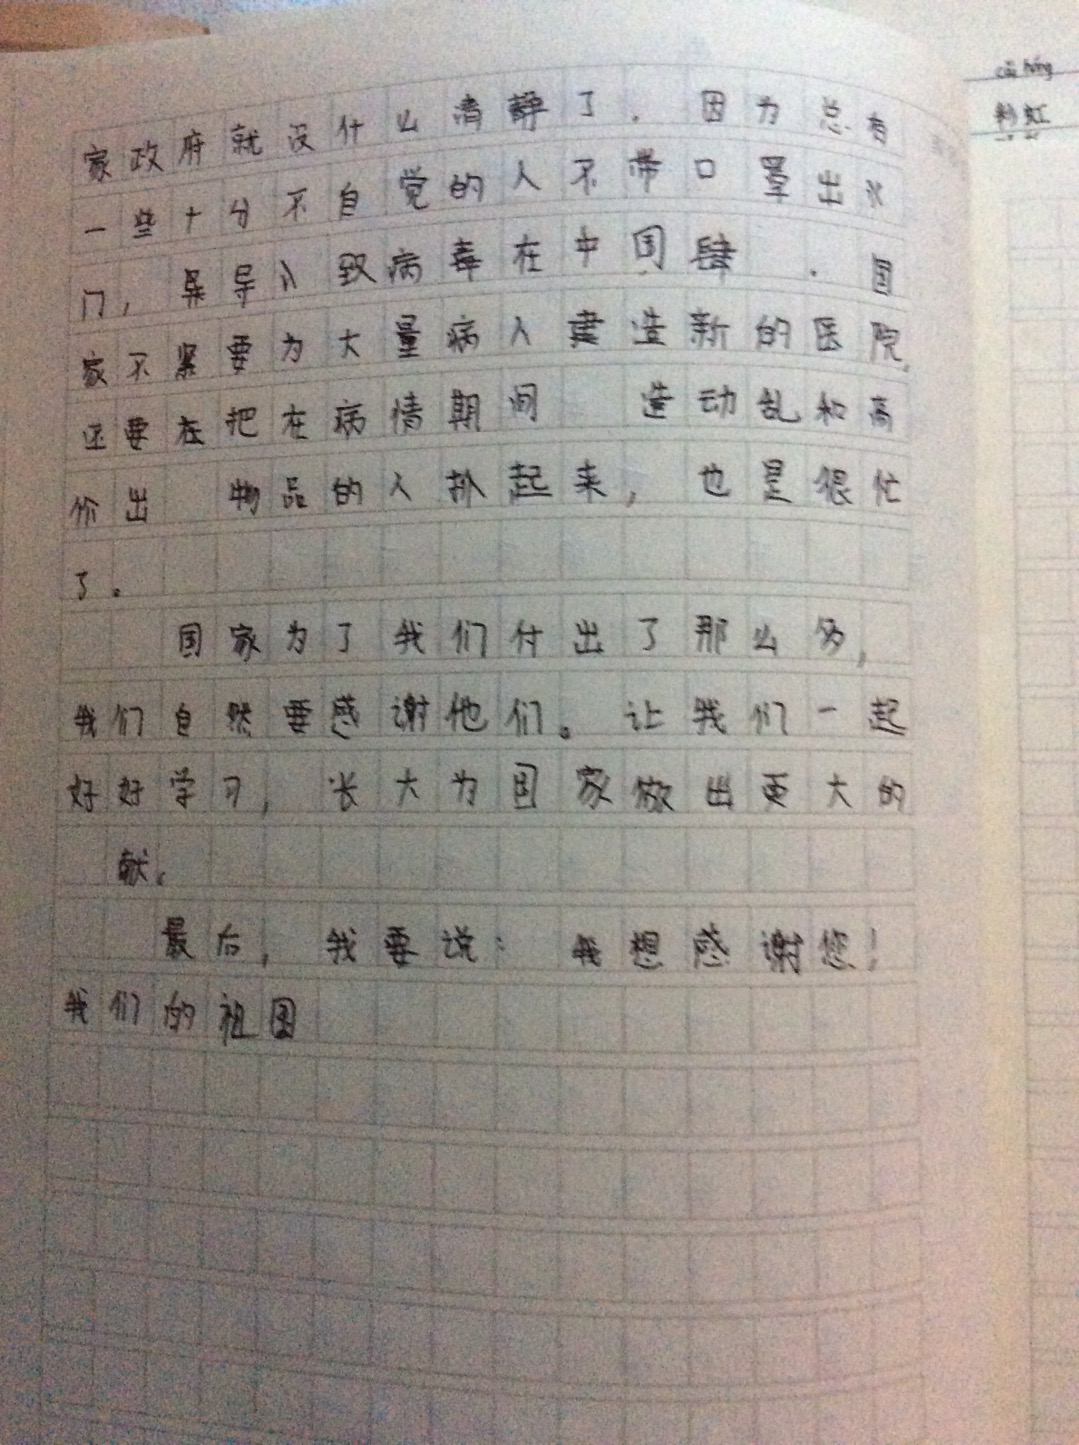 cǎi hóng
彩虹
家政府就没什么清静了。因为总有
一些十分不自觉的人不带口罩出
门,导致病毒在中国肆 。国
家不紧要为大量病人建造新的医院,
还要在把在病情期间 造动乱和高
价出 物品的人抓起来,也是很忙
了。
国家为了我们付出了那么多,
我们自然要感谢他们。让我们一起
好好学习,长大为国家做出更大的
献。
最后,我要说:我想感谢您!
我们的祖国